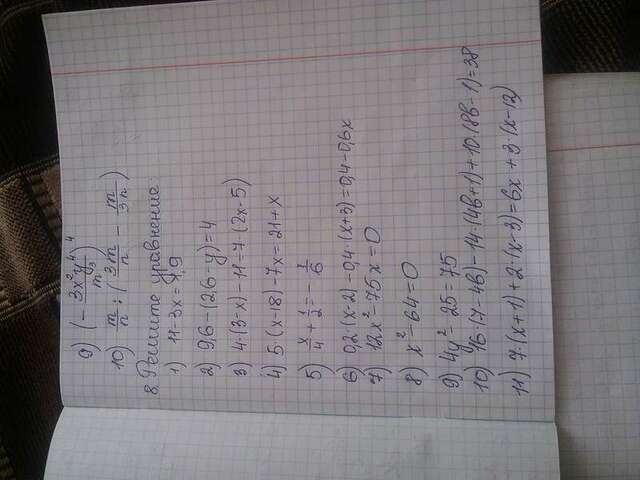 9) (-3x²y⁴/m³)⁴
10) m/n : (3m/n - m/3n)
8. Решите уравнение:
1) 11-3x=4,9
2) 9,6-(2,6-y)=4
3) 4·(3-x)-11=7·(2x-5)
4) 5·(x-18)-7x=21+x
5) x/4+1/2=-1/6
6) 0,2·(x-2)-0,4·(x+3)=0,4-0,6x
7) 12x²-75x=0
8) x²-64=0
9) 4y²-25=75
10) 16·(7-4в)-14·(4в+1)+10·(8в-1)=38
11) 7·(x+1)+2·(x-3)=6x+3·(x-12)